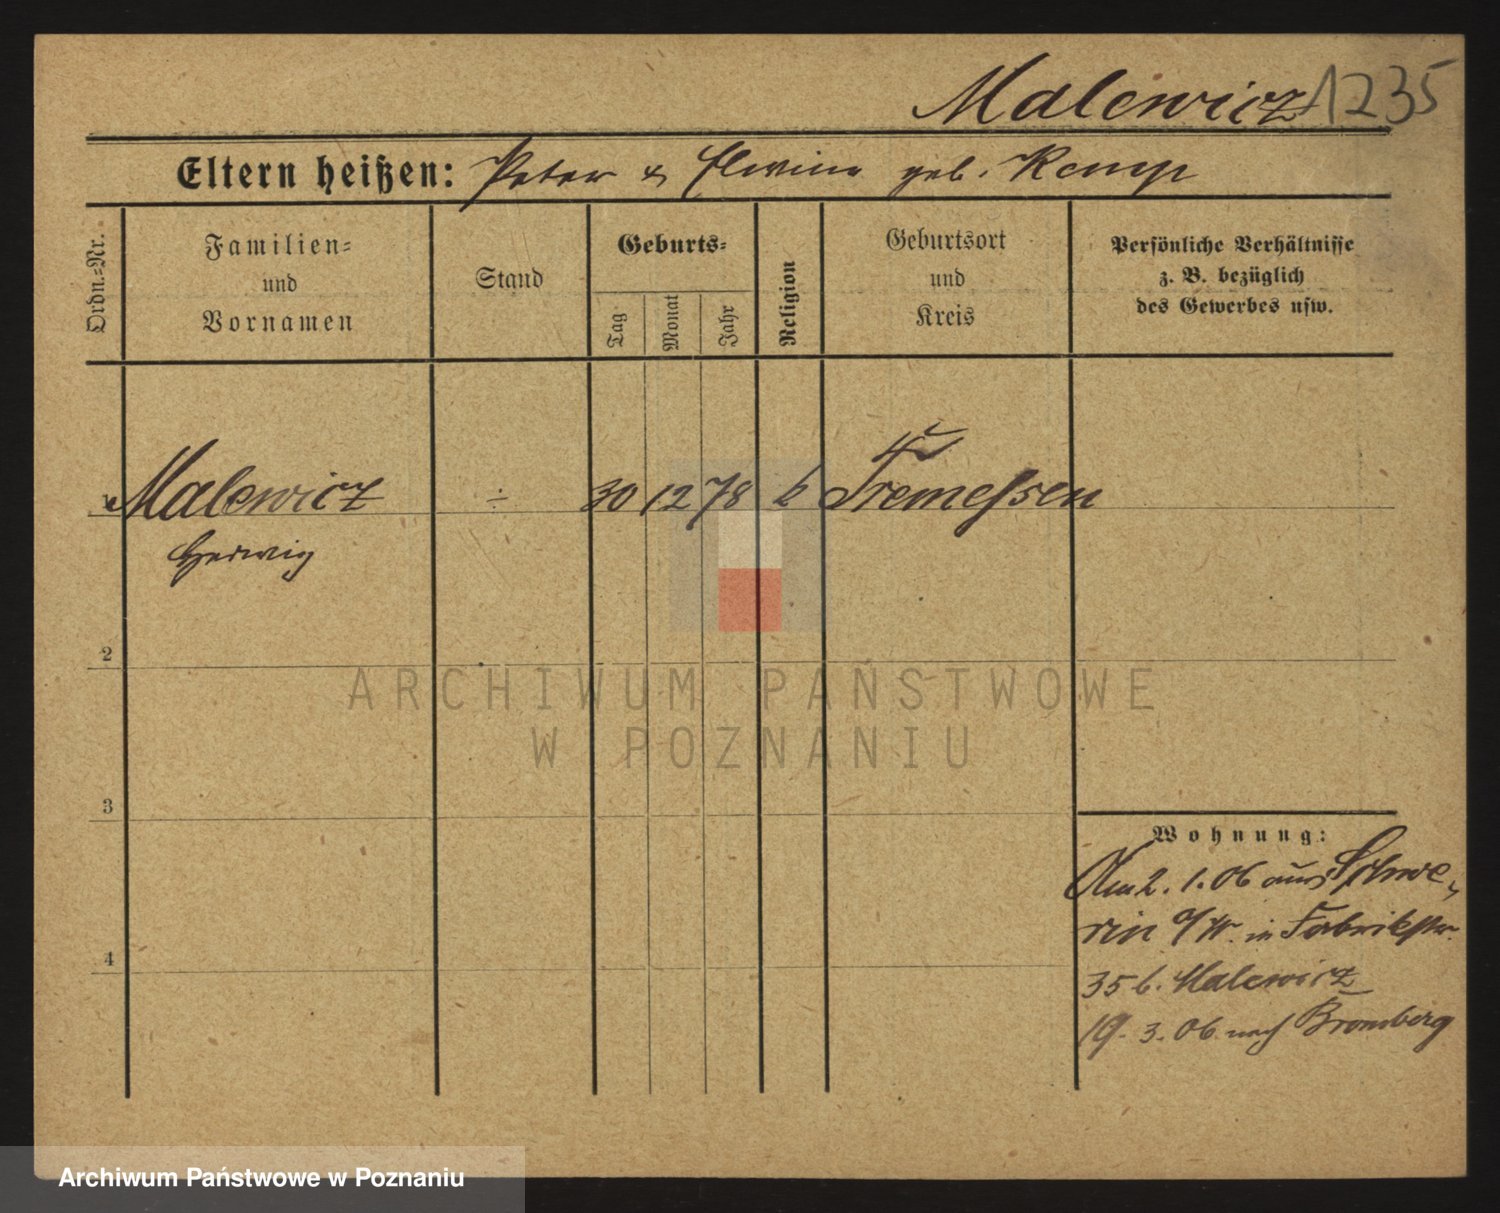 Malewicz 1235
Eltern heißen: Peter & Elwine geb. Kemp
Ordn.=Nr.
Familien=
und
Vornamen
Stand
Geburts=
Tag
Monat
Jahr
Religion
Geburtsort
und
Kreis
Persönliche Verhältnisse
z. B. bezüglich
des Gewerbes usw.
Malewicz ÷ 30 12 78 k Tremessen
Hedwig
2
3
4
Wohnung:
Am 2. 1. 06 aus Schwe-
rin a/W. in Fabrikstr.
35 b. Malewicz
19. 3. 06 nach Bromberg
ARCHIWUM PAŃSTWOWE
W POZNANIU
Archiwum Państwowe w Poznaniu